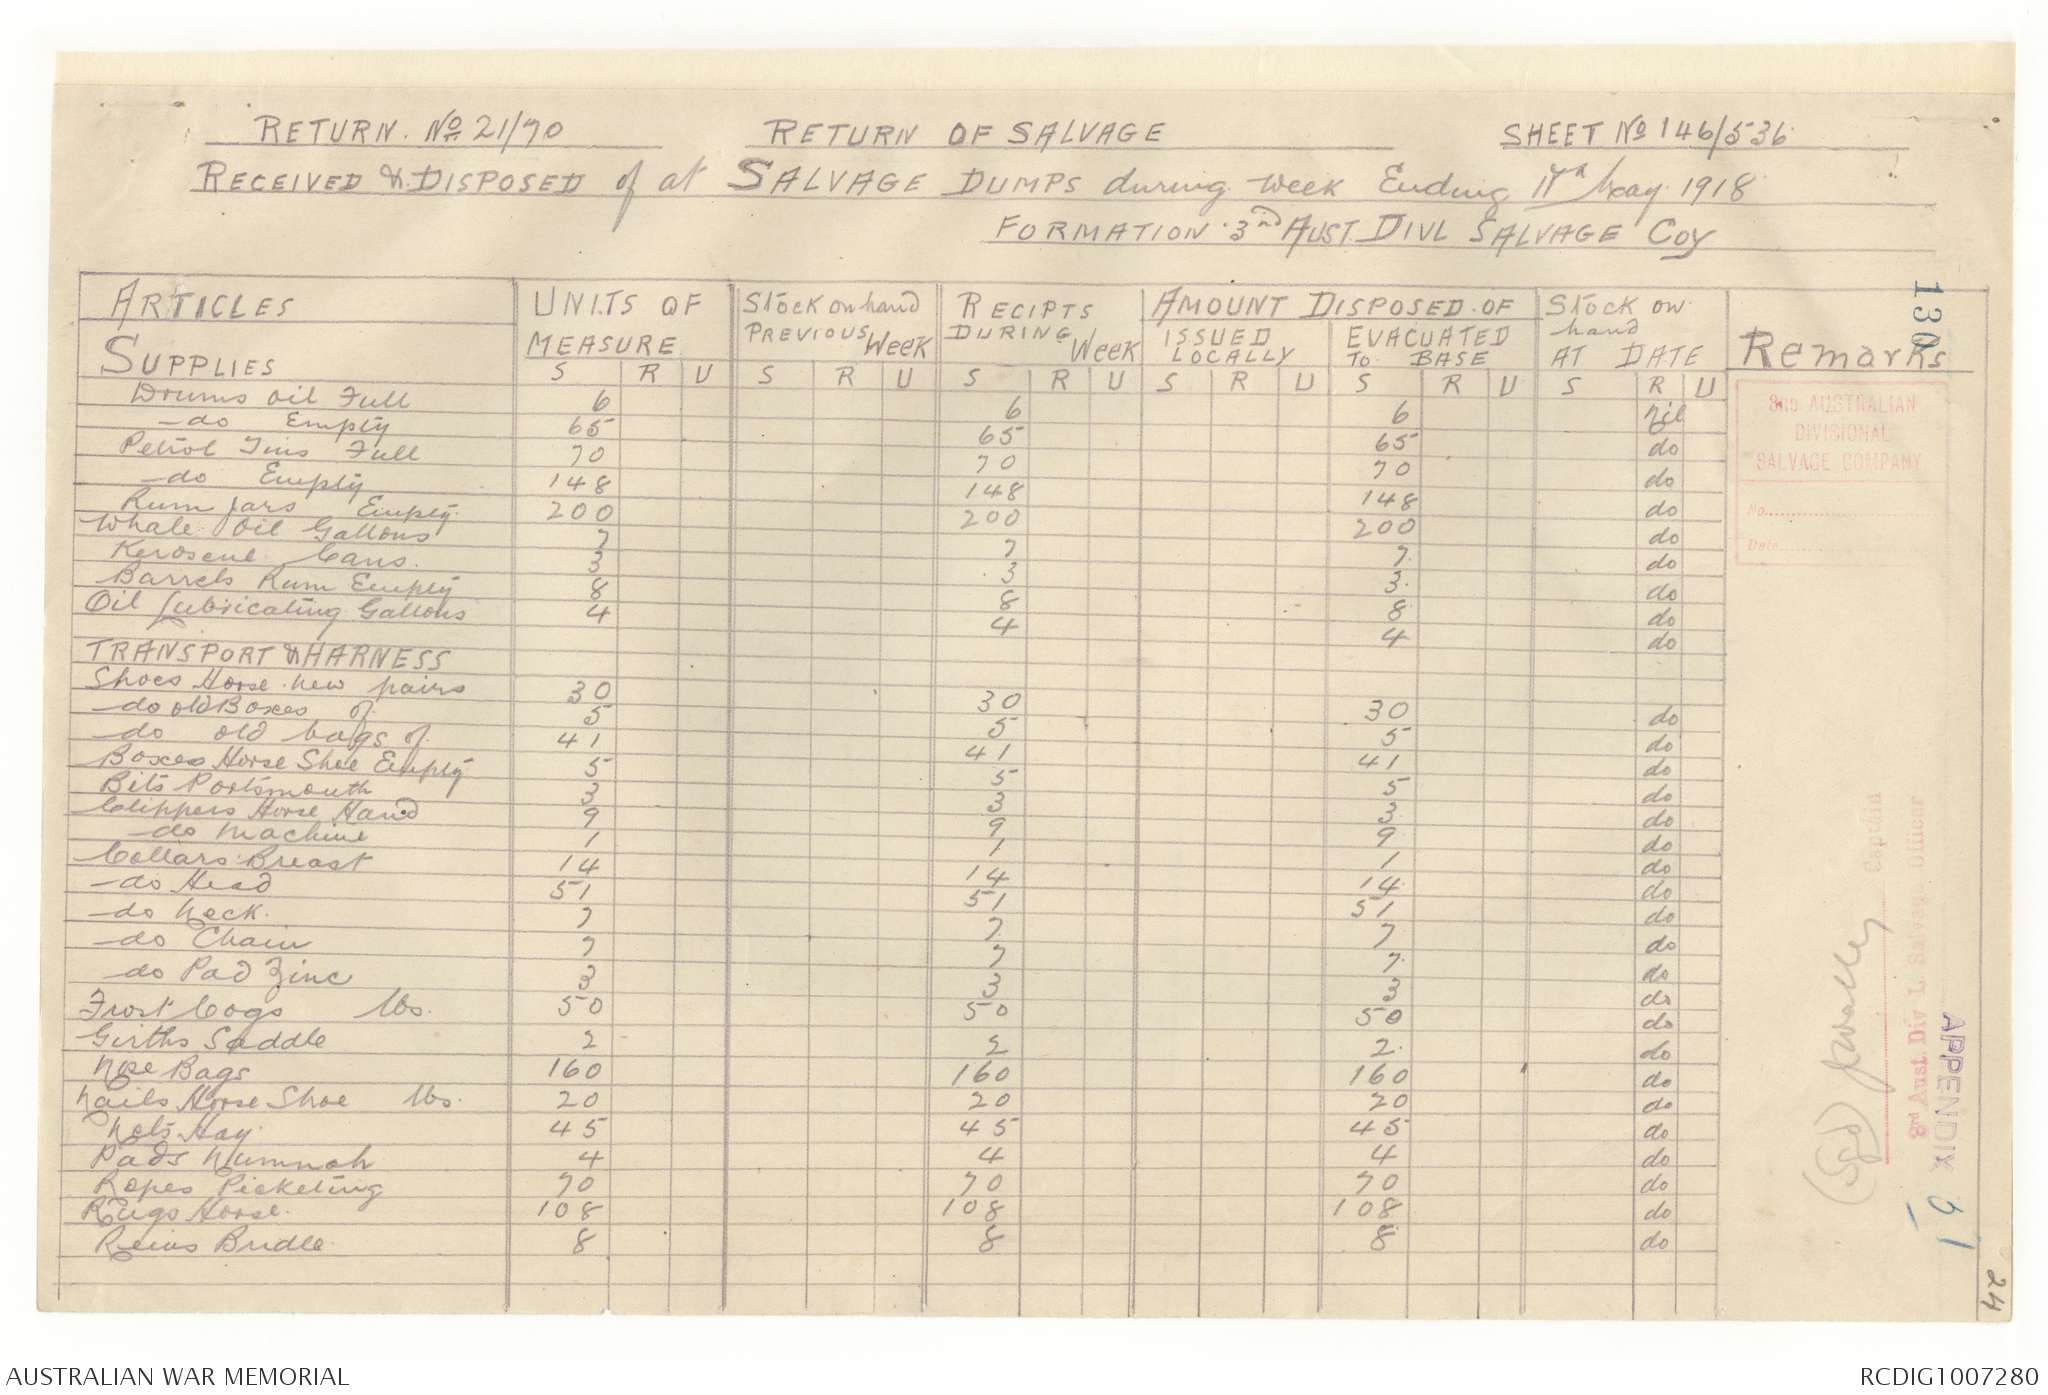 RETURN. No 21/70 RETURN OF SALVAGE SHEET No 146/536
RECEIVED & DISPOSED of at SALVAGE DUMPS during Week Ending May 1918
FORMATION. 3nd AUST. DIVL SALVAGE Coy
ARTICLES UNITS OF MEASURE Stock on hand PREVIOUS Week RECIPTS DURING Week AMOUNT DISPOSED OF Stock on hand AT DATE Remarks
ISSUED LOCALLY EVACUATED To BASE
SUPPLIES S R U S R U S R U S R U S R U S R U
Drums oil Full 6 6 6 Nil
-do Empty 65 65 65 do
Petrol Tins Full 70 70 70 do
-do Empty 148 148 148 do
Rum Jars Empty 200 200 200 do
Whale Oil Gallons 7 7 7 do
Kerosene Cans. 3 3 3 do
Barrels Rum Empty 8 8 8 do
Oil Lubricating Gallons 4 4 4 do
TRANSPORT & HARNESS
Shoes Horse New pairs 30 30 30 do
-do old Boxes of 5 5 5 do
-do old bags of 41 41 41 do
Boxes Horse Shoe Empty 5 5 5 do
Bits Portsmouth 3 3 3 do
Clippers Horse Hand 9 9 9 do
-do Machine 1 1 1 do
Collars Breast 14 14 14 do
-do Head 51 51 51 do
-do Neck. 7 7 7 do
-do Chain 7 7 7 do
-do Pad Zinc 3 3 3 do
Frost Cogs lbs. 50 50 50 do
Girths Saddle 2 2 2 do
Nose Bags 160 160 160 do
Nails Horse Shoe lbs. 20 20 20 do
Nets Hay 45 45 45 do
Pads Numnah 4 4 4 do
Ropes Picketing 70 70 70 do
Rugs Horse. 108 108 108 do
Reins Bridle 8 8 8 do
130
3RD AUSTRALIAN
DIVISIONAL
SALVAGE COMPANY
No.
Date
(Sgd) Captain
3rd Aust. Div L Salvage Officer
APPENDIX
24
AUSTRALIAN WAR MEMORIAL RCDIG1007280